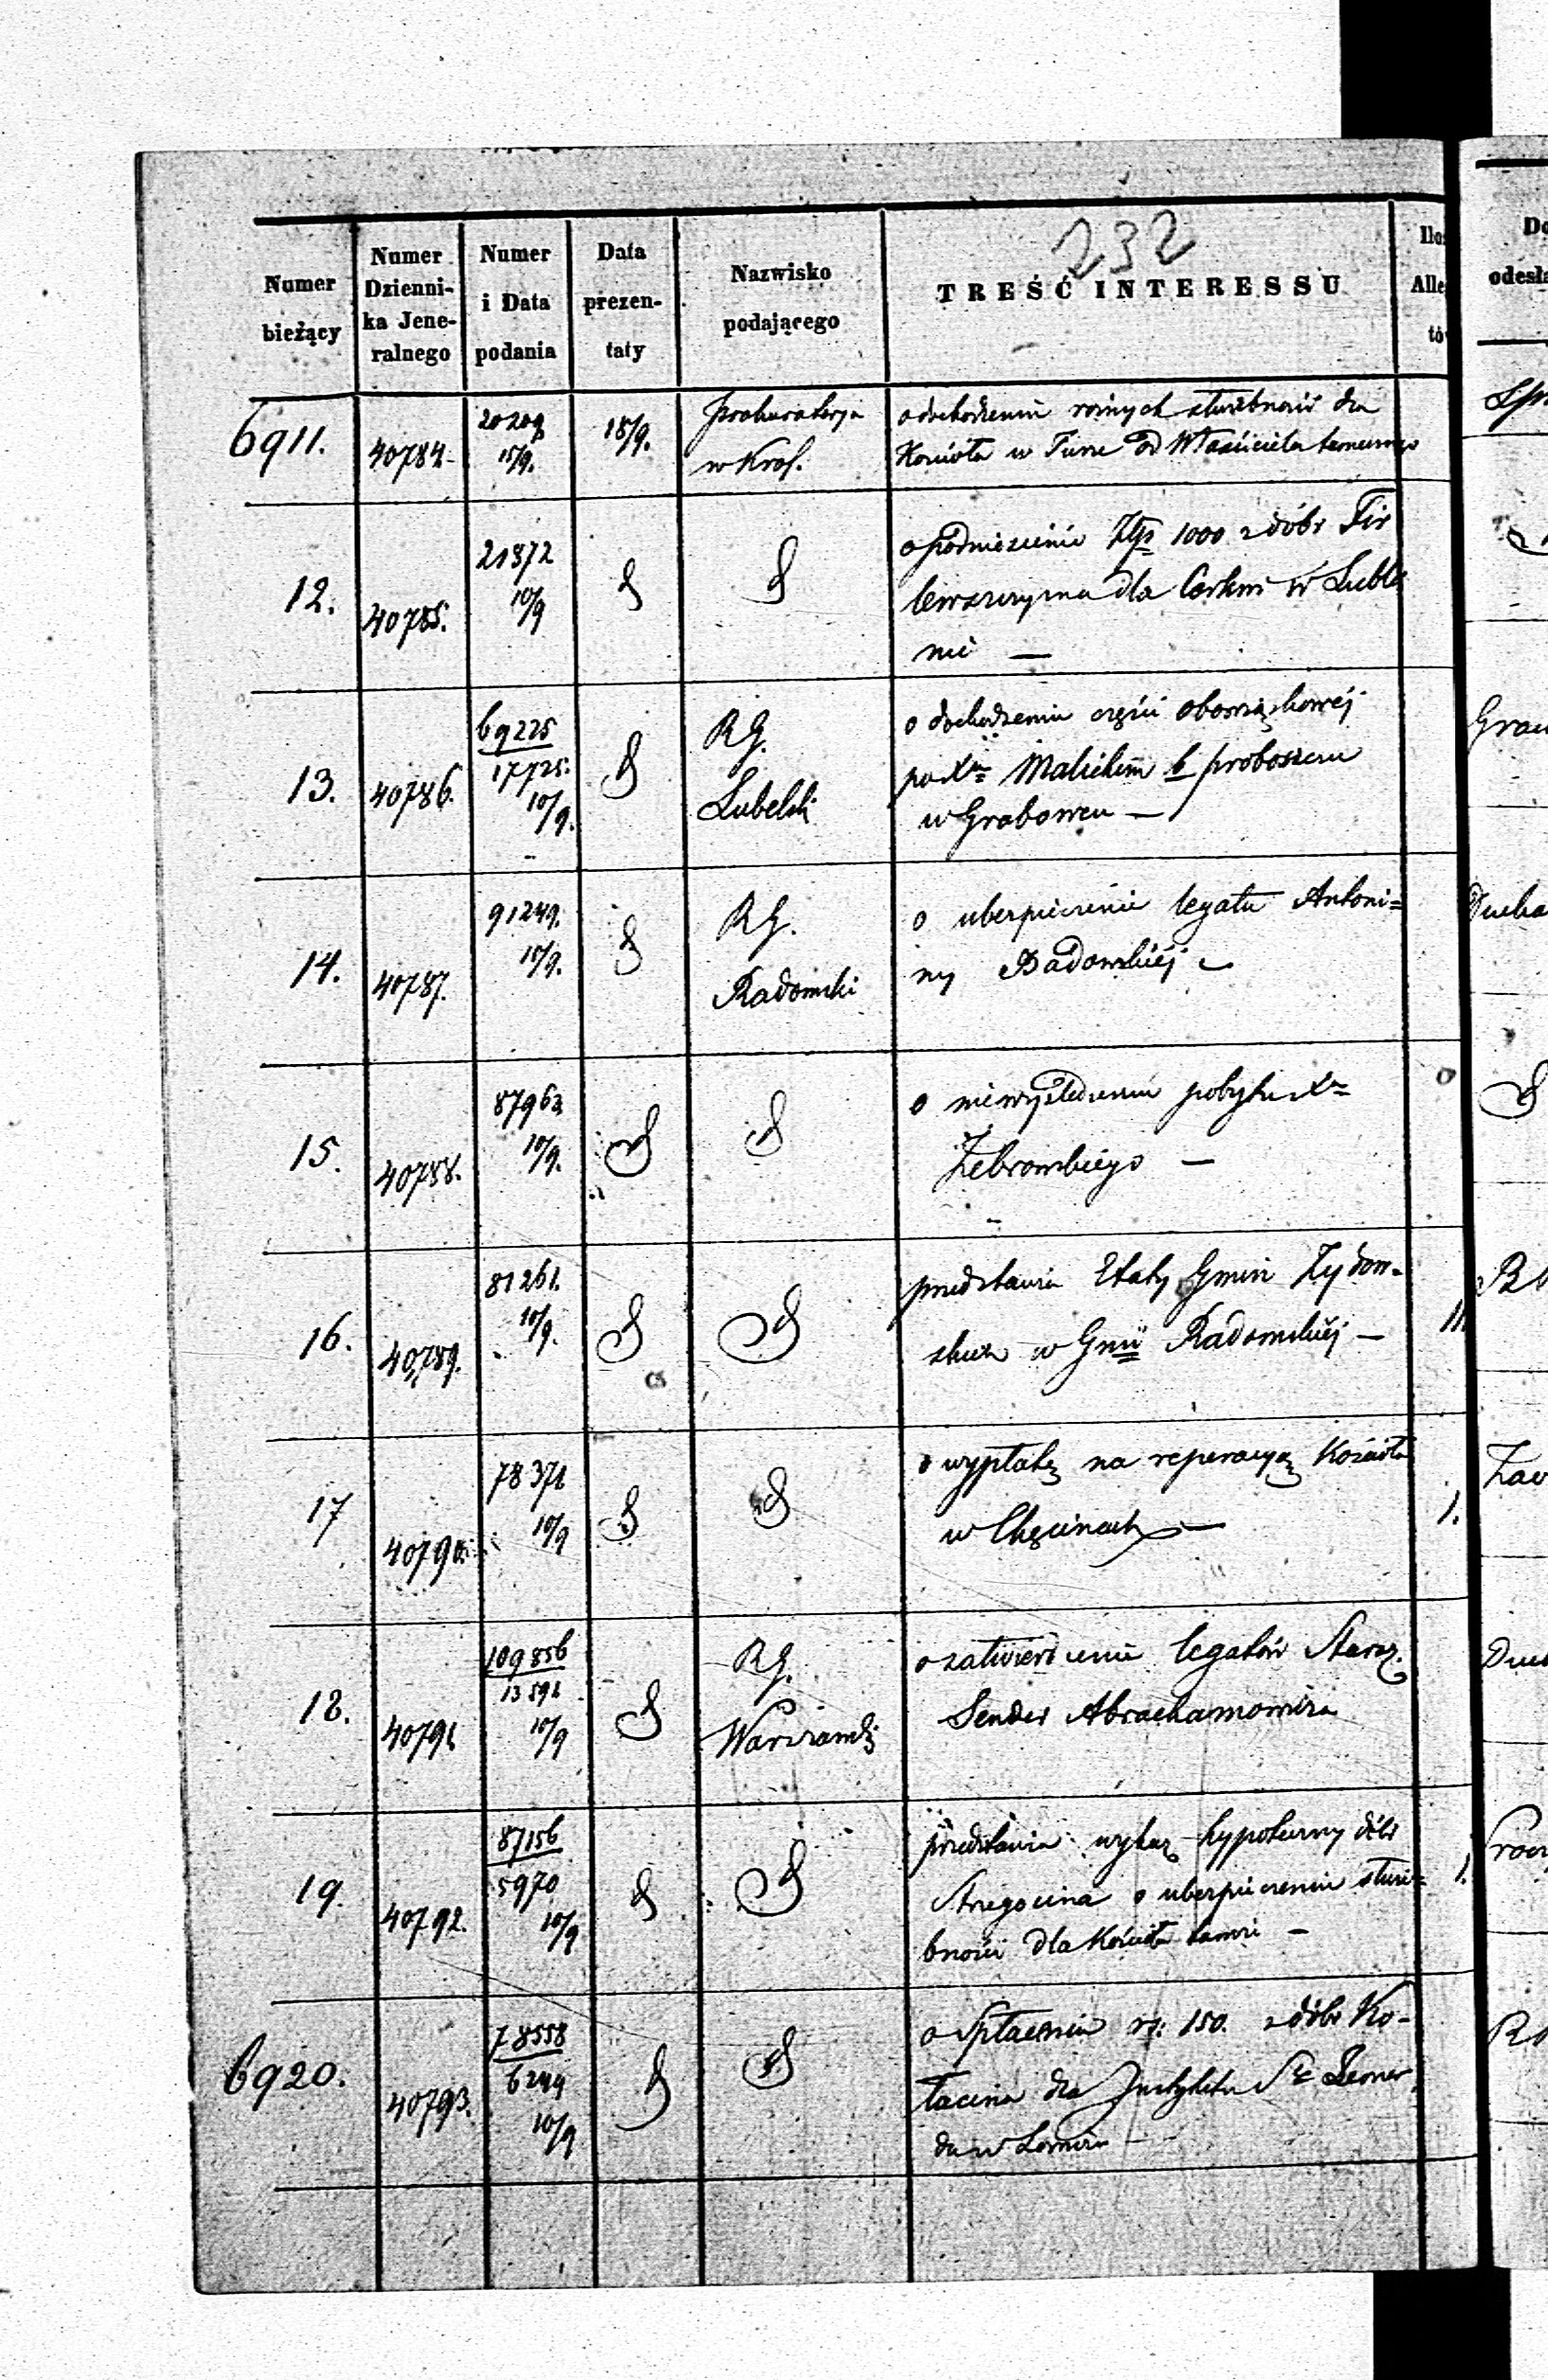 232
Numer bieżący
Numer Dzienni- ka Jene- ralnego
Numer i Data podania
Data prezen- taty
Nazwisko podającego
TREŚĆ INTERESSU
6911.
40784
20209
15/9.
18/9.
Prokuratorya
w Król.
o dochodzeniu rożnych służebności dla
Kościoła w Turze od Właściciela tamecznego
12.
40785.
21372
10/9
o podniesienie Złp 1000 z dóbr
dla Cerkwi w Lubli
nie —
13.
40786.
69225
17725.
10/9.
RG.
Lubelski
o dochodzeniu części obowiązkowéj
po Xu Malickim b proboszczu
w Grabowcu —
14.
40787.
91249.
15/9.
RG.
Radomski
o ubezpieczenie legatu Antoni=
ny Badowskiéj
15.
40788.
87963
10/9.
o niewyśledzeniu pobytu Xa
Żebrowskiego —
16.
40789.
81261.
10/9.
przedstawia Etaty Gmin Żydow-
skich w Gnii Radomskiéj —
17
40790.
78371
10/9
o wypłatę na reperacyą Kościoła
w Chęcinach —
1.
18.
40791
109856
13591
10/9
RG.
Warszawski
o zatwierdzenie legatów Staroz.
Sender Abrachamowicza
19.
40792.
87156
5970
10/9
przedstawia wykaz hypoteczny dóbr
Stregocina o ubezpieczeniu służe=
bności dla Kościoła tamże —
1.
6920.
40793.
78558
6244
10/9
o Spłaceniu rs: 150. z dóbr Ko-
łacina dla Instytutu